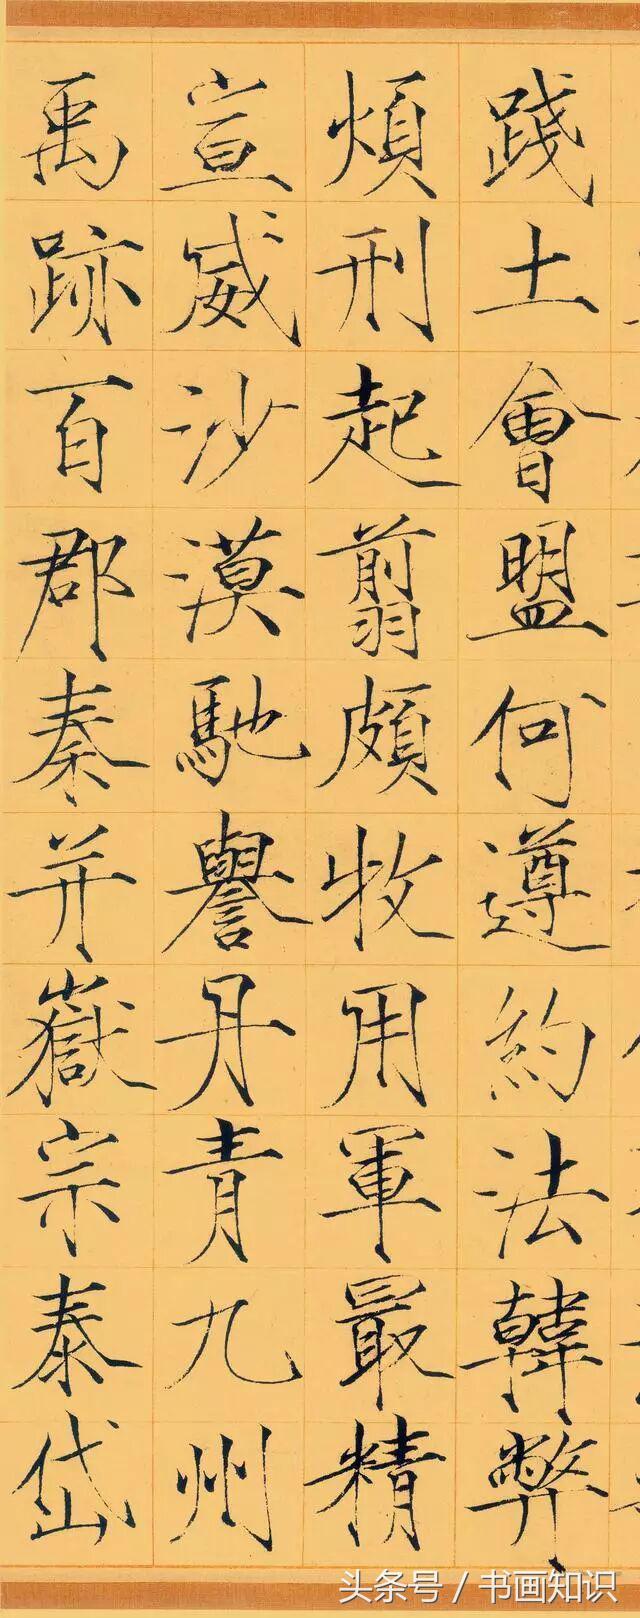 踐土會盟何遵約法韓弊
煩刑起翦頗牧用軍最精
宣威沙漠馳譽丹青九州
禹跡百郡秦并嶽宗泰岱
头条号 / 书画知识